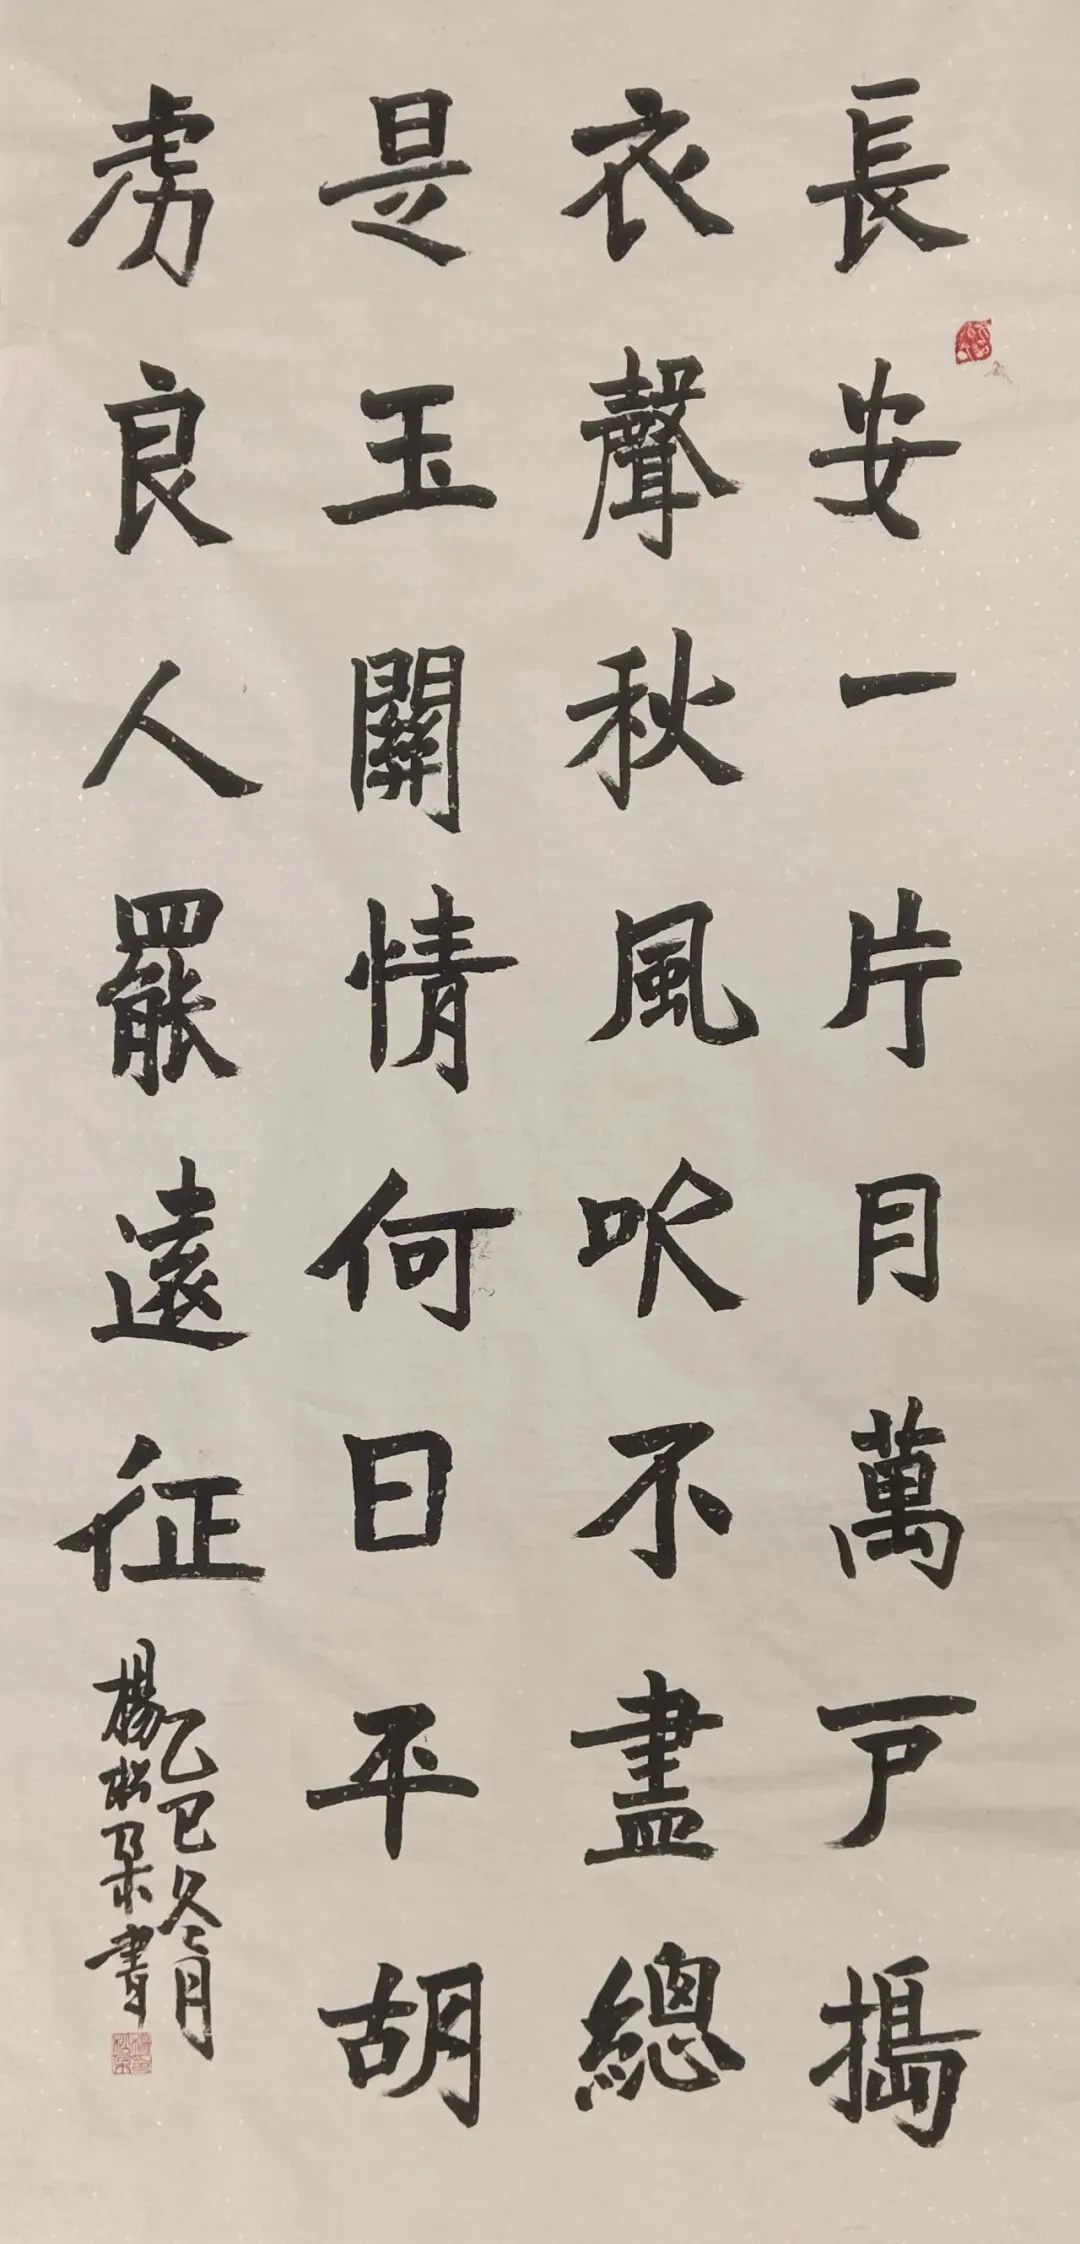 長安一片月萬戸搗
衣聲秋風吹不盡總
是玉關情何日平胡
虜良人罷遠征
乙巳冬月
楊松朵書